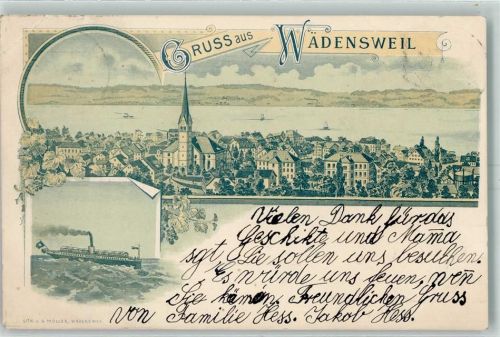 GRUSS aus WÄDENSWEIL
Vielen Dank für das
Geschikte und Mama
sgt, Sie sollen uns besuchen.
Es würde uns feuen, wen
Sie kämen. Freundlichen Gruss
von Familie Hess. Jakob Hess.
LITH. v. G. MÜLLER, WÄDENSWEIL